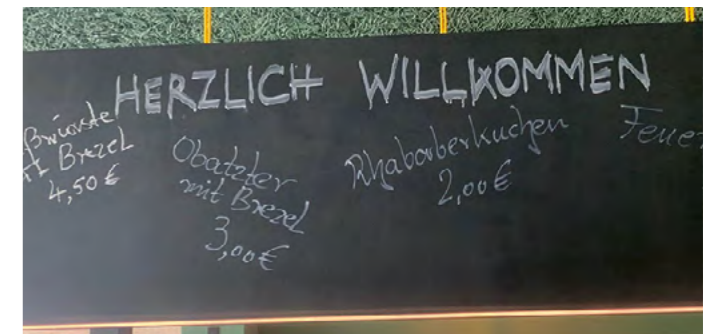 HERZLICH WILLKOMMEN
Brezel
4,50 €
Obatzter
mit Brezel
3,00 €
Rhabarberkuchen
2,00 €
Feuer